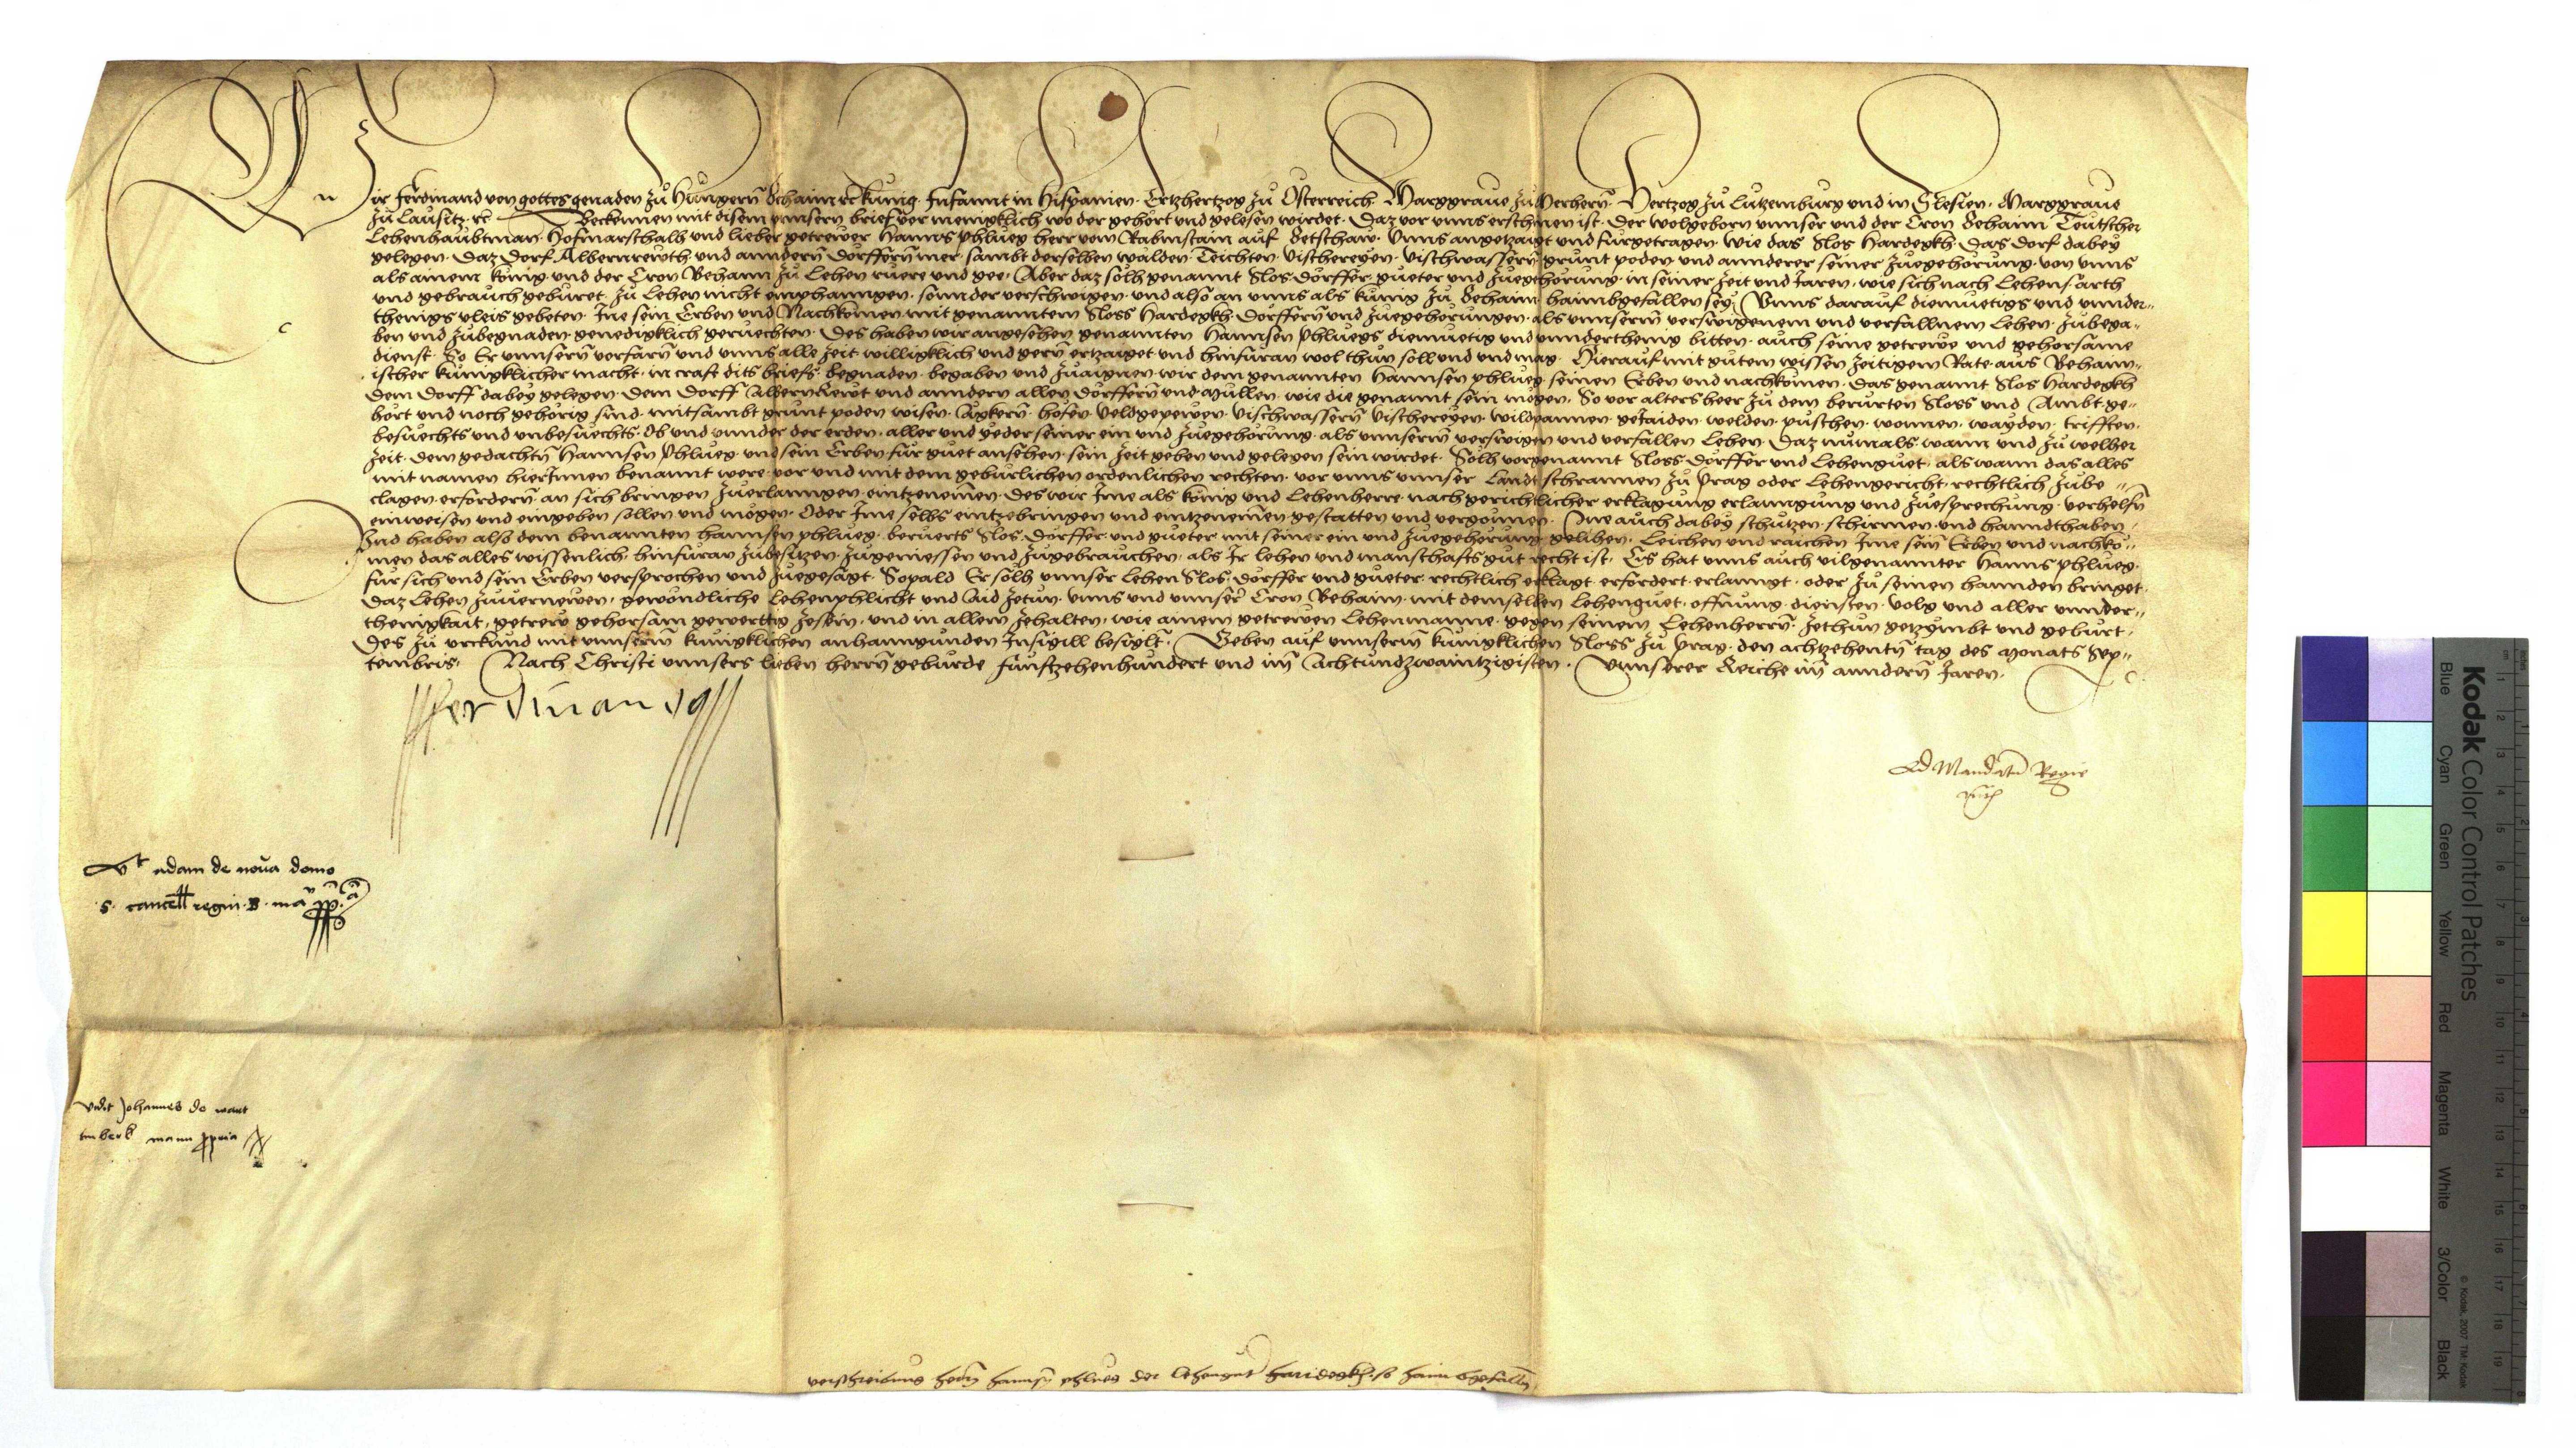 Wir Ferdinand von gottes genaden zů Hungern̄ Behaim ꝛc Kunig. Infannt in Hispanien. Ertzhertzog zů Österreich. Marggraue zů Merhern̄. Hertzog zů Lutzemburg und in Slesien. Marggraue
zů Lausitz. ꝛc Bekennen mit disem unnsern brief vor menigklich wo der gehört und gelesen wirdet. Daz vor unns erschinen ist. Der wolgeborn unnser und der Cron Behaim Teutscher
Lehenhaubtman. Hofmarschalh und lieber getrewer Hanns Phlueg herr vom Rabnstain auf Betschaw. Unns angetzaigt und furgetragen. wie das Slos Hardegkh. Das dorf dabeÿ
gelegen. Daz dorf Albernrewth. und anndern̄ dörffern̄ mer. sambt derselben wälden. Teichten. vischereyen. vischwassern̄. grunt poden und annderer seiner zuegehörung. von unns
als ainem könig und der Cron Behaim zů Lehen rüere und gee. Aber daz solh genannt Slos. dörffer. gueter und zuegehörung. in seiner zeit und Jaren. wie sich nach Lehens arth
und gebrauch gebüret. zů Lehen nicht emphanngen. sonnder verschwigen. und also an unns als kunig zů Behaim haimbgefallen seÿ. Unns darauf diemuetigs und unnder„
thenigs vleis gebeten. Ine sein Erben und Nachkomen mit genanntem Sloss Hardegkh. dörffern̄ und zuegehorungen. als unnserm̄ verswigenem und verfallnem Lehen. zubega„
ben und zubegnaden genedigklich geruechten. Des haben wir angesehen genannten Hannsen Phluegs diemuetig und unnderthenig bitten. auch seine getrewe und gehorsame
dienst. So Er unnsern̄ vorfarn̄ und unns alle zeit willigklich und gern̄ ertzaiget und hinfuran wol thun soll und und mag. Hierauf mit gutem wissen zeitigem Rate. aus Behaim„
ischer kunigklicher macht. in craft dits briefs. begnaden. begaben und zuaignen wir dem genannten Hannsen phlueg. seinen Erben und nachkomen. das genannt Slos Hardegkh
dem dorff dabeÿ gelegen. dem dorff Albernrewt und anndern allen dörffern̄ und mullen. wie die genannt sein mögen. So vor alters heer zů dem berurten Sloss und Ambt ge„
hört und noch gehörig sind. mitsambt grunt poden wisen. Äckern̄. höfen. veldgepewen. vischwassern̄ vischereyen. wildpannen. geiaiden. welden. puschen. wonnen. wayden. trifften.
besuechts und unbesuechts. ob und unnder der erden. aller und yeder seiner ein und zuegehörung. als unnserm̄ verswigen und verfallen Lehen. Daz nůmals wann und zů welher
zeit. dem gedachtn̄ Hannsen Phlueg. und sein Erben für guet ansehen. sein zeit geben und gelegen sein wirdet. Solh vorgenannt Sloss. dörffer und Lehenguet. als wann das alles
mit namen hierInnen benannt were. vor und mit dem geburlichen ordenlichen rechten. vor unns unnser Landtschrannen zů Prag oder Lehengericht. rechtlich zube„
clagen. erfordern̄. an sich bringen. zuerlanngen. eintzenemen. des wir Ime als kunig und Lehenherre. nach gerichtlicher erklagung erlanngung und zuesprechung. verhelfn̄
einweisen und eingeben sollen und mögen. Oder Ime selbs eintzebringen und eintzenemen gestatten und vergönnen. Ine auch dabeÿ schutzen. schirmen. und hanndthaben.
Und haben also dem benannten hannsen phlueg. beruerts Slos. dörffer. und gueter mit seiner ein und zuegehorung gelihen. Leichen und raichen Ime sein̄ Erben und nachko„
men das alles wissenlich. hinfuran zubesitzen. zugeniessen und zugebrauchen. als Ir lehen und manschafts gut recht ist. Es hat unns auch vilgenannter Hanns phlueg.
fur sich und sein Erben versprochen und zuegesagt. Sopald Er solh unnser Lehen Slos. dörffer und gueter. rechtlich erklagt. erfordert. erlanngt. oder zů seinen hannden bringet.
daz Lehen zuuernewen. gewöndliche Lehenphlicht und Aid zetun. unns und unnser̄ Cron Behaim. mit demselben Lehenguet. offnung. diensten. volg und aller unnder„
thenigkait. getrew gehorsam gewerttig zesein. und in allem zehalten. wie ainem getrewen Lehenmanne. gegen seinem Lehenherrn̄. zethun getzymbt und geburt.
Des zů urkund mit unnserm̄ kunigklichen anhanngunden Insigill besiglt. Geben auf unnserm̄ kunigklichen Sloss zů Prag. den achtzehentn̄ tag des monats Sep„
tembris. Nach Christi unnsers lieben herrn̄ geburde funftzehenhundert und im̄ Achtundzwaintzigisten. Unnserer Reiche im̄ anndern̄ Jaren.
Ferdinandus
Ad Mandatū Regie
Adam de noua domo
s. cancell regni. B. manu ppa
vidit Johannes de wart
tmberk manu ppria
verschreibung herrn̄ hannsn̄ phlueg der lehengut hardegkh so haimbgefalln̄